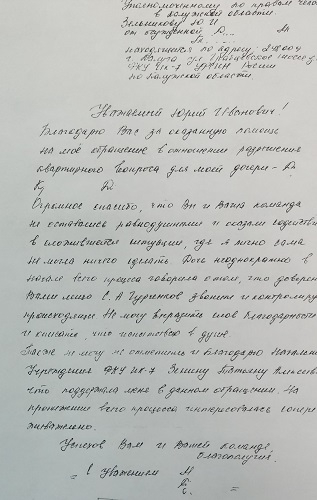 Уполномоченному по правам чело
в Калужской области.
Зельникову Ю И
от осужденной Д. М
находящейся по адресу 248009
г Калуга ул Грабцевское шоссе
ФКУ ИК-7 УФСИН России
по Калужской области.
Уважаемый Юрий Иванович!
Благодарю Вас за оказанную помощь
на моё обращение в отношении разрешения
квартирного вопроса для моей дочери-
Огромное спасибо, что Вы и Ваша команда
не остались равнодушными и оказали содействие
в сложившейся ситуации, где я лично сама
не могла ничего сделать. Дочь неоднократно в
начале всего процесса говорила о том, что доверен
Вами лицо С. А Гурченков звоните и контролируе
происходящее. Не могу выразить слов благодарности
и описать, что испытываю в душе.
Также я могу не отметить и благодарю начальни
Учреждения ФКУ ИК-7 Зенину Татьяну Алексеевн
что поддержала меня в данном обращении. На
протяжении всего процесса интересовалась
Успехов Вам и Вашей команде,
благополучия.
С Уважением М